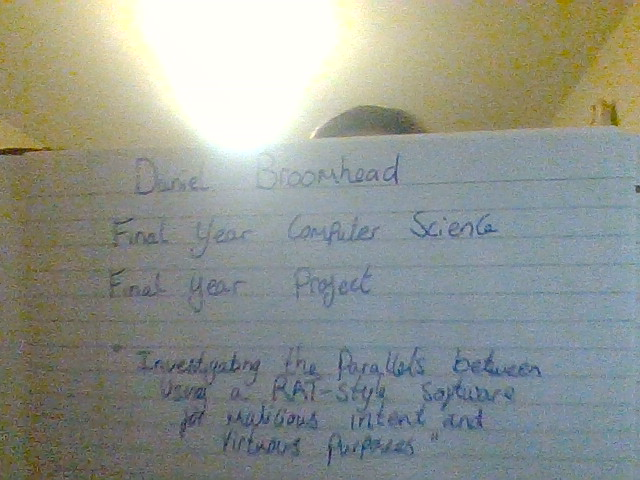 Daniel Broomhead
Final Year Computer Science
Final Year Project
"Investigating the Parallels between
Using a RAT-Style Software
for Malicious intent and
Virtuous Purposes"